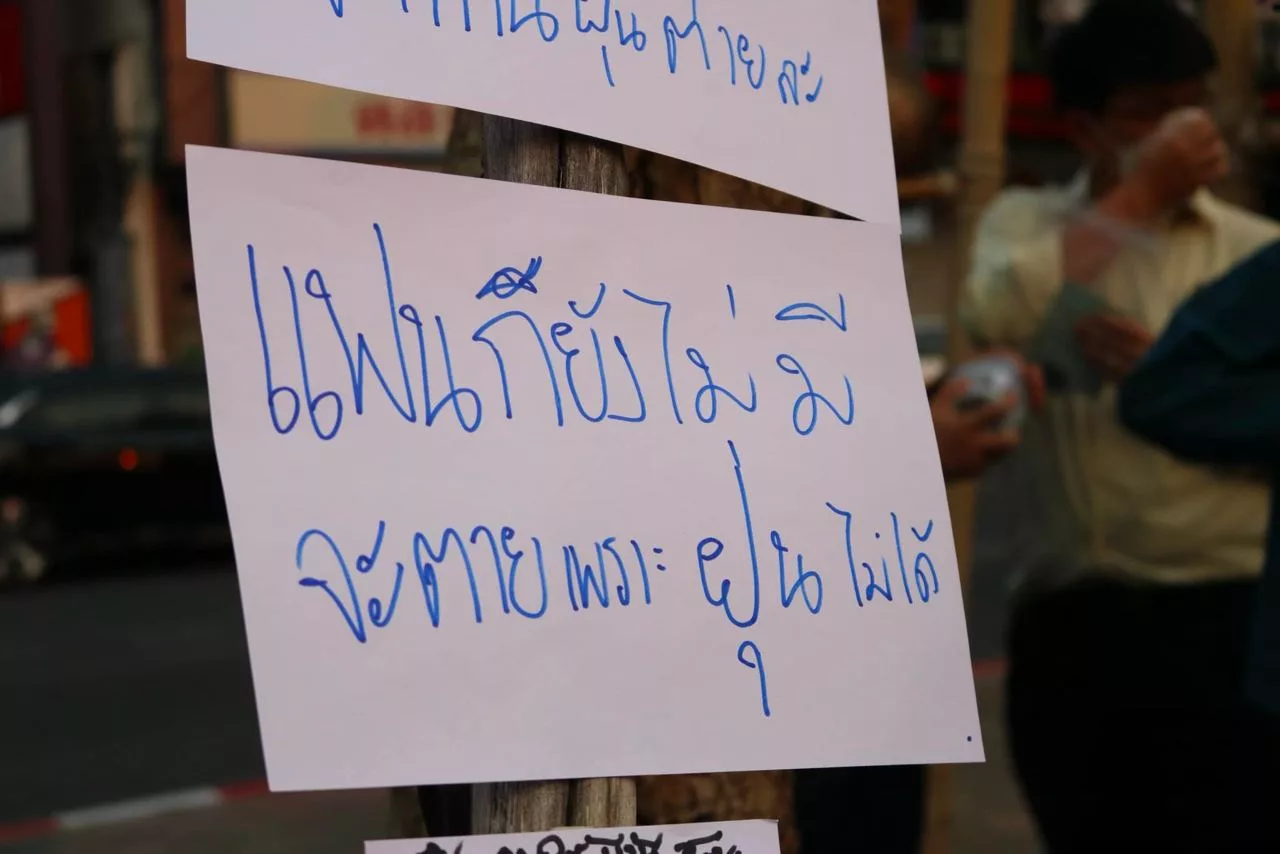 ฝุ่นตายละ
แฟนก็ยังไม่มี
จะตายเพราะฝุ่นไม่ได้